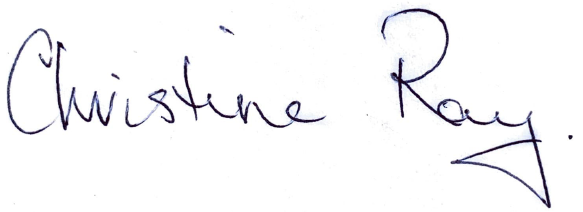 Christine Ray.